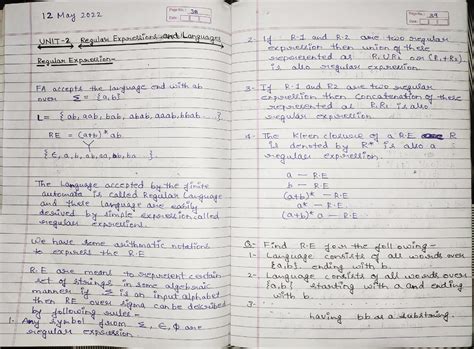 12 May 2022
Page No.: 38
Date
UNIT-2, Regular Expressions and Languages
Regular Expression-
FA accepts the language end with ab
over Σ = {a,b}
L = { ab, aab, bab, abab, aaab, bbab ... }
RE = (a+b)* ab
{ ε, a, b, ab, aa, bb, ba ... }
The language accepted by the finite
automata is called Regular Language
and these language are easily
derived by simple expression called
regular expressions.
We have some arithmatic notations
to express the R.E
R.E are meant to represent certain
set of strings in some algebraic
manner if Σ is an input alphabet
then RE over sigma can be described
by following rules-
1- Any symbol from Σ, ∈, Φ are
regular expression
Page No.: 39
Date
2- If R-1 and R2 are two regular
expression then union of these
represented as R1UR2 or (R1+R2)
is also regular expression.
3- If R-1 and R2 are two regular
expression then concatenation of these
represented as R.R2 is also
regular expression
4- The Kleen closure of a R.E R
is denoted by R* is also a
regular expression.
a — R.E
b — R.E
(a+b)* — R.E
a* — R.E
(a+b)* a — R.E
Q- Find R.E for the following-
1- Language consists of all words over
{a,b} ending with b.
2- Language consists of all words over
{a,b} starting with a and ending
with b.
3- having bb as a substring